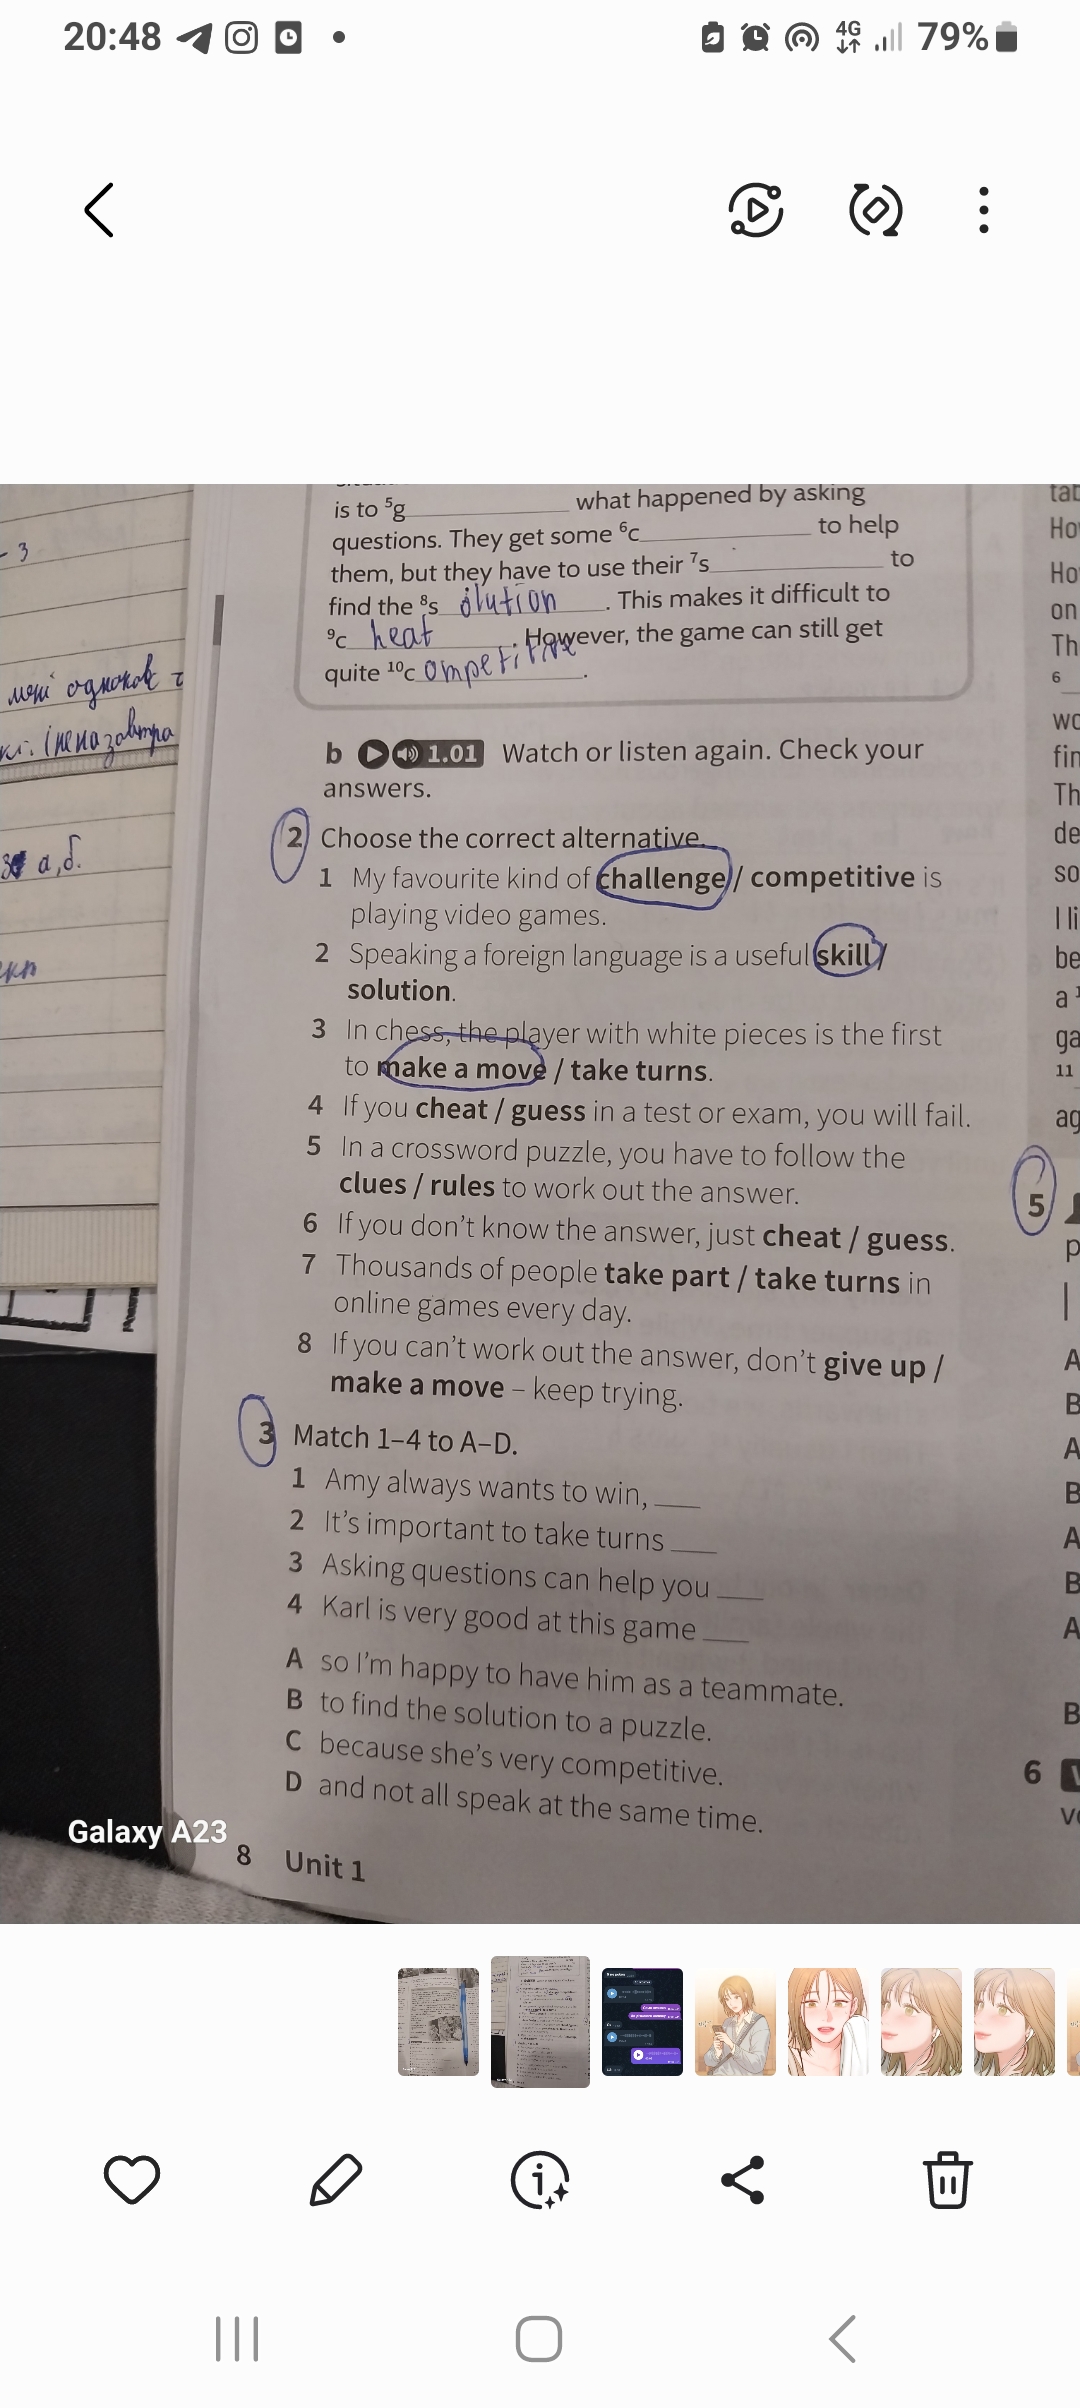 20:48
4G
79%
is to ⁵g what happened by asking
questions. They get some ⁶c to help
them, but they have to use their ⁷s to
find the ⁸s olution . This makes it difficult to
⁹c heat . However, the game can still get
quite ¹⁰c ompetitive .
b 1.01 Watch or listen again. Check your
answers.
2 Choose the correct alternative.
1 My favourite kind of challenge / competitive is
playing video games.
2 Speaking a foreign language is a useful skill /
solution.
3 In chess, the player with white pieces is the first
to make a move / take turns.
4 If you cheat / guess in a test or exam, you will fail.
5 In a crossword puzzle, you have to follow the
clues / rules to work out the answer.
6 If you don't know the answer, just cheat / guess.
7 Thousands of people take part / take turns in
online games every day.
8 If you can't work out the answer, don't give up /
make a move – keep trying.
3 Match 1–4 to A–D.
1 Amy always wants to win, ___
2 It's important to take turns ___
3 Asking questions can help you ___
4 Karl is very good at this game ___
A so I'm happy to have him as a teammate.
B to find the solution to a puzzle.
C because she's very competitive.
D and not all speak at the same time.
8 Unit 1
Galaxy A23
- 3
а,б.
Ho
Ho
on
Th
6
wo
fin
Th
de
so
I li
be
a
ga
11
ag
5
p
A
B
A
B
A
B
A
B
6